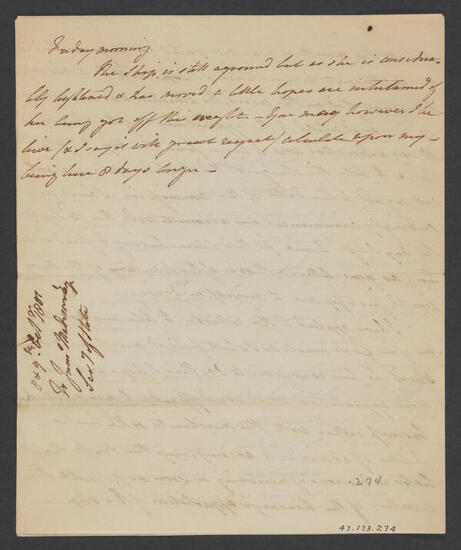 Friday morning
The Ship is still aground but as she is considera-
bly lightened & has moved a little hopes are entertained of
her being got off this  – You may however I be
lieve (& I say it with great regret) calculate upon my
being here 8 days longer –
8 & 9th Octr 1801
To James
Secy of State
.274
47.173.274